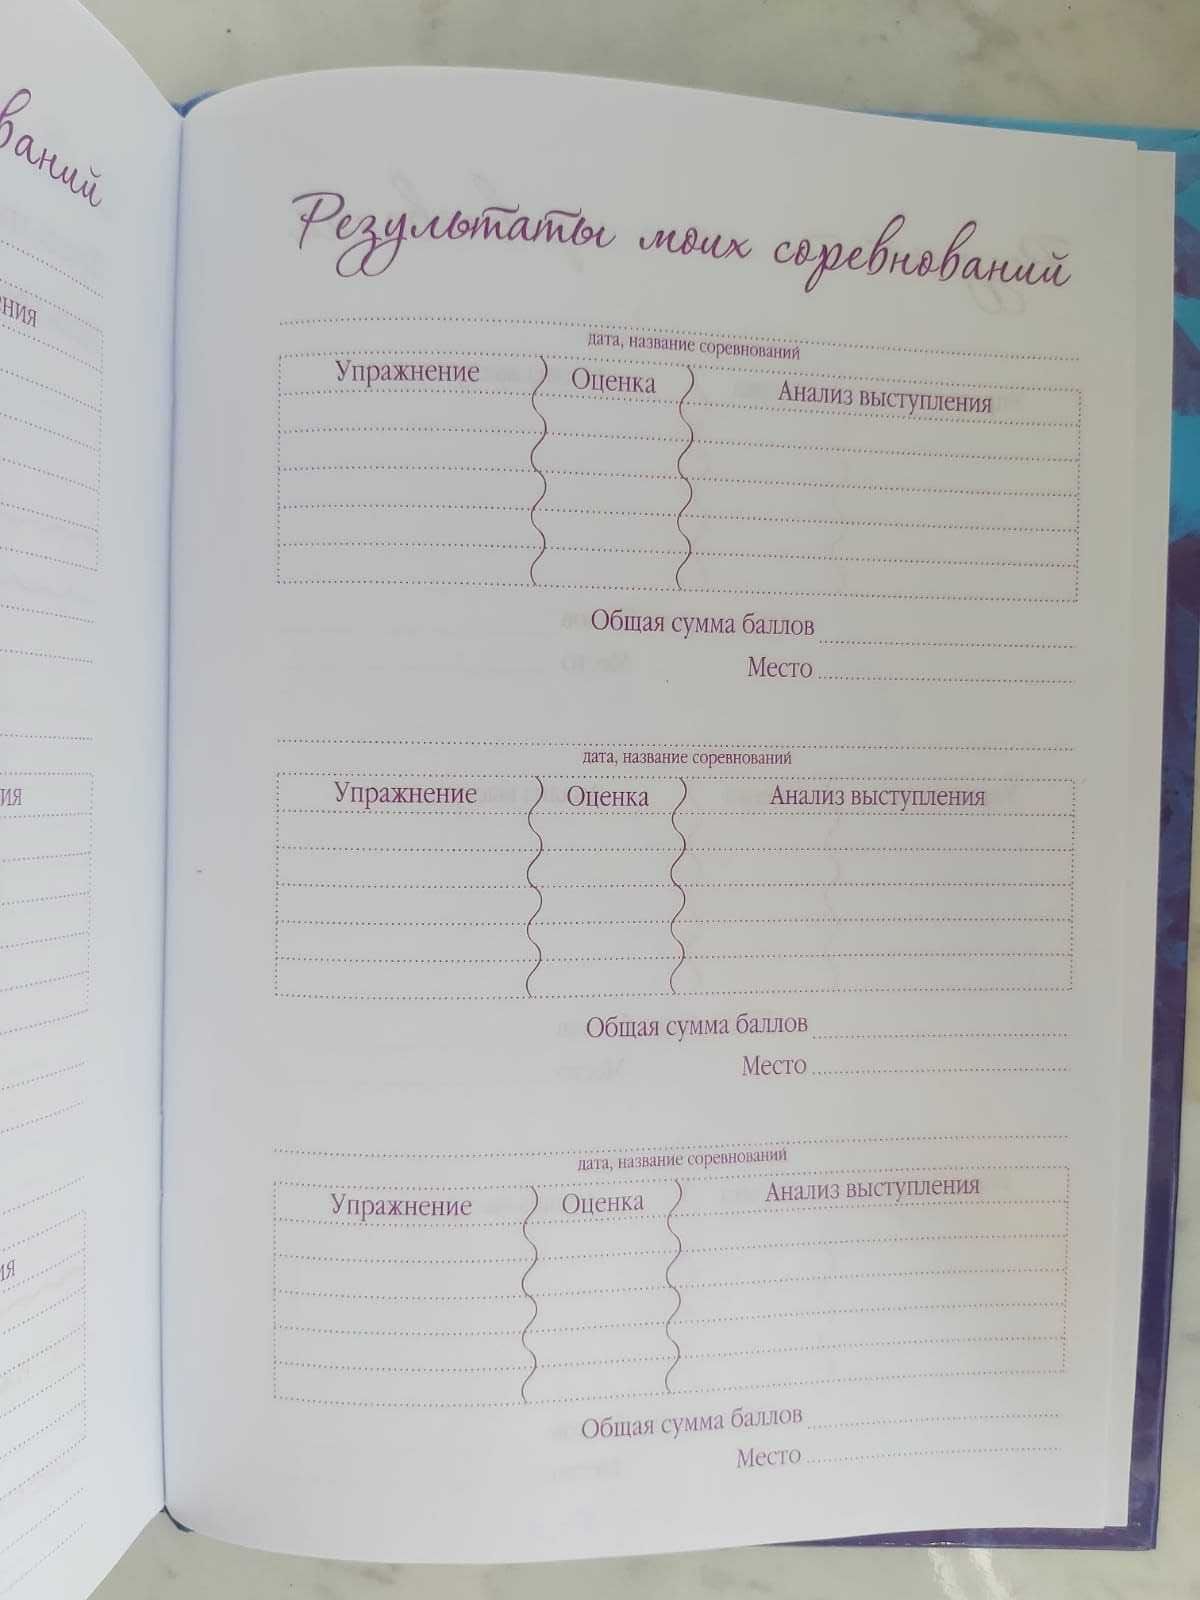 ваний
ения
ия
ия
Результаты моих соревнований
дата, название соревнований
Упражнение Оценка Анализ выступления
Общая сумма баллов
Место
дата, название соревнований
Упражнение Оценка Анализ выступления
Общая сумма баллов
Место
дата, название соревнований
Упражнение Оценка Анализ выступления
Общая сумма баллов
Место